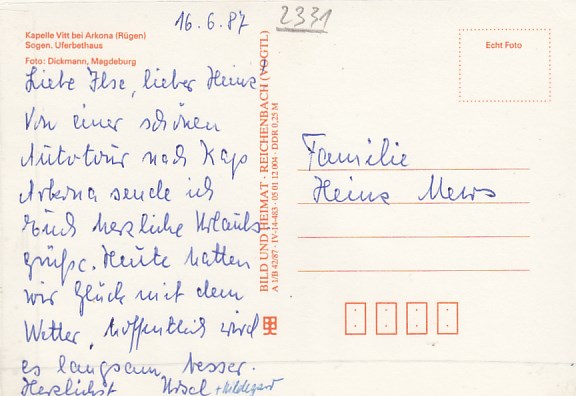 16.6.87
2331
Kapelle Vitt bei Arkona (Rügen)
Sogen. Uferbethaus
Foto: Dickmann, Magdeburg
Liebe Ilse, lieber Heinz
Von einer schönen
Autotour nach Kap
Arkona sende ich
Euch herzliche Urlaubs
grüße. Heute hatten
wir Glück mit dem
Wetter, hoffentlich wird
es langsam besser.
Herzlichst Ursel + Hildegard
BILD UND HEIMAT · REICHENBACH (VOGTL)
A 1/B 42/87 · IV-14-483 · 05 01 12 004 · DDR 0,25 M
Echt Foto
Familie
Heinz Mews